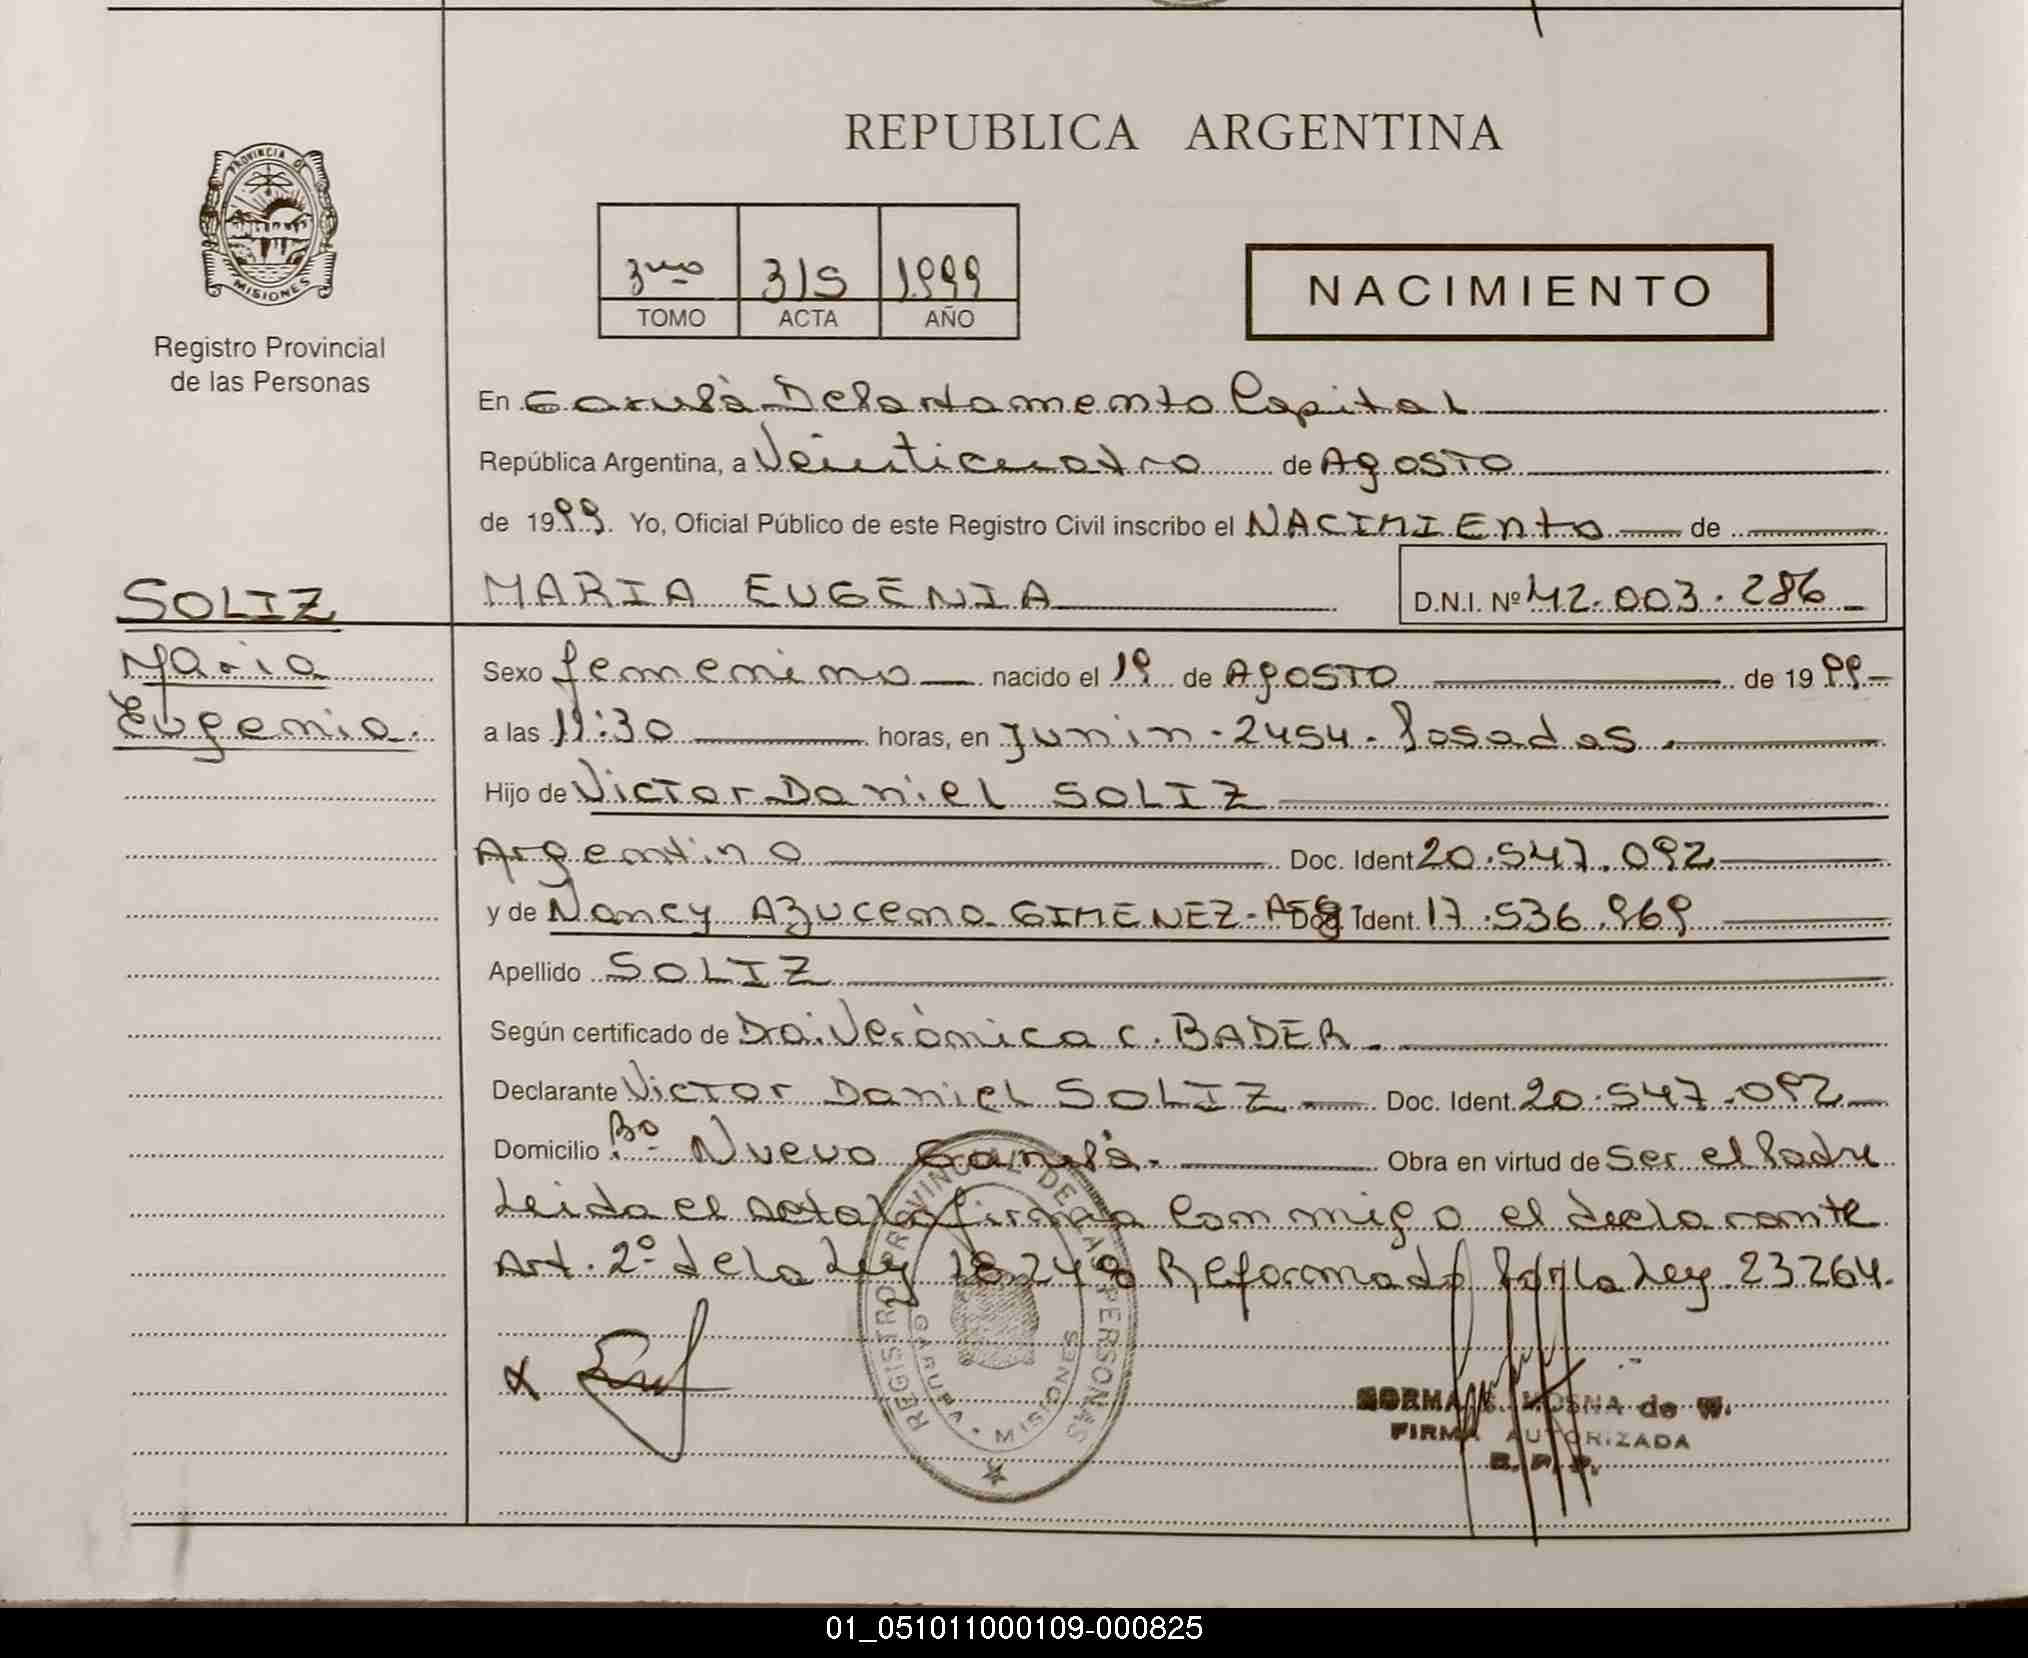 REPUBLICA ARGENTINA
PROVINCIA DE
MISIONES
Registro Provincial
de las Personas
3ro 315 1999
TOMO ACTA AÑO
NACIMIENTO
En Garupá Departamento Capital
República Argentina, a Veinticuatro de Agosto
de 1999. Yo, Oficial Público de este Registro Civil inscribo el NACIMIENTO de
SOLIZ
Maria
Eugenia.
MARIA EUGENIA D.N.I. Nº 42.003.286
Sexo femenino nacido el 19 de AGOSTO de 1999
a las 11:30 horas, en Junin - 2454 - Posadas.
Hijo de Victor Daniel SOLIZ
Argentino Doc. Ident 20.547.092
y de Nancy Azucena GIMENEZ - Arg. Doc. Ident. 17.536.969
Apellido SOLIZ
Según certificado de Dra. Verónica C. BADER.
Declarante Victor Daniel SOLIZ Doc. Ident. 20.547.092
Domicilio Bº Nuevo Garupá. Obra en virtud de Ser el Padre
Leida el acta la firma conmigo el declarante
Art. 2º de la Ley 18248 Reformado por la Ley 23264.
REGISTRO PROVINCIAL DE LAS PERSONAS
GARUPA • MISIONES
NORMA MOSNA de W.
FIRMA AUTORIZADA
01_051011000109-000825